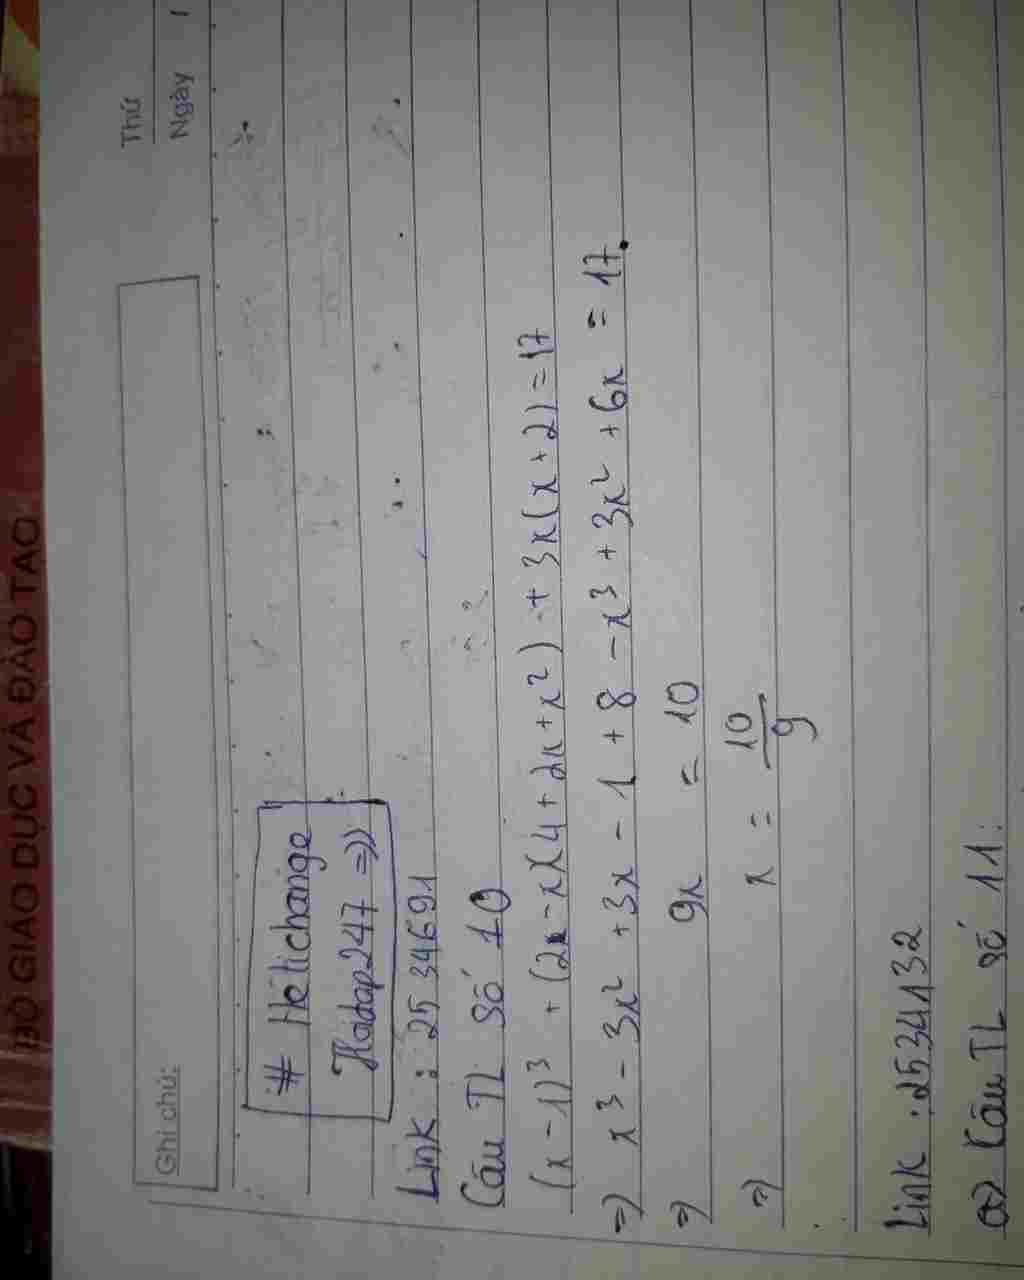 BỘ GIÁO DỤC VÀ ĐÀO TẠO
Thứ
Ngày
Ghi chú:
# Hetichange
Hoidap247 =))
Link : 2534691
Câu TL Số 10
(x - 1)³ + (2 - x)(4 + 2x + x²) + 3x(x + 2) = 17
=) x³ - 3x² + 3x - 1 + 8 - x³ + 3x² + 6x = 17.
=) 9x = 10
=) x = 10/9
Link : 2534132
a) Câu TL số 11: